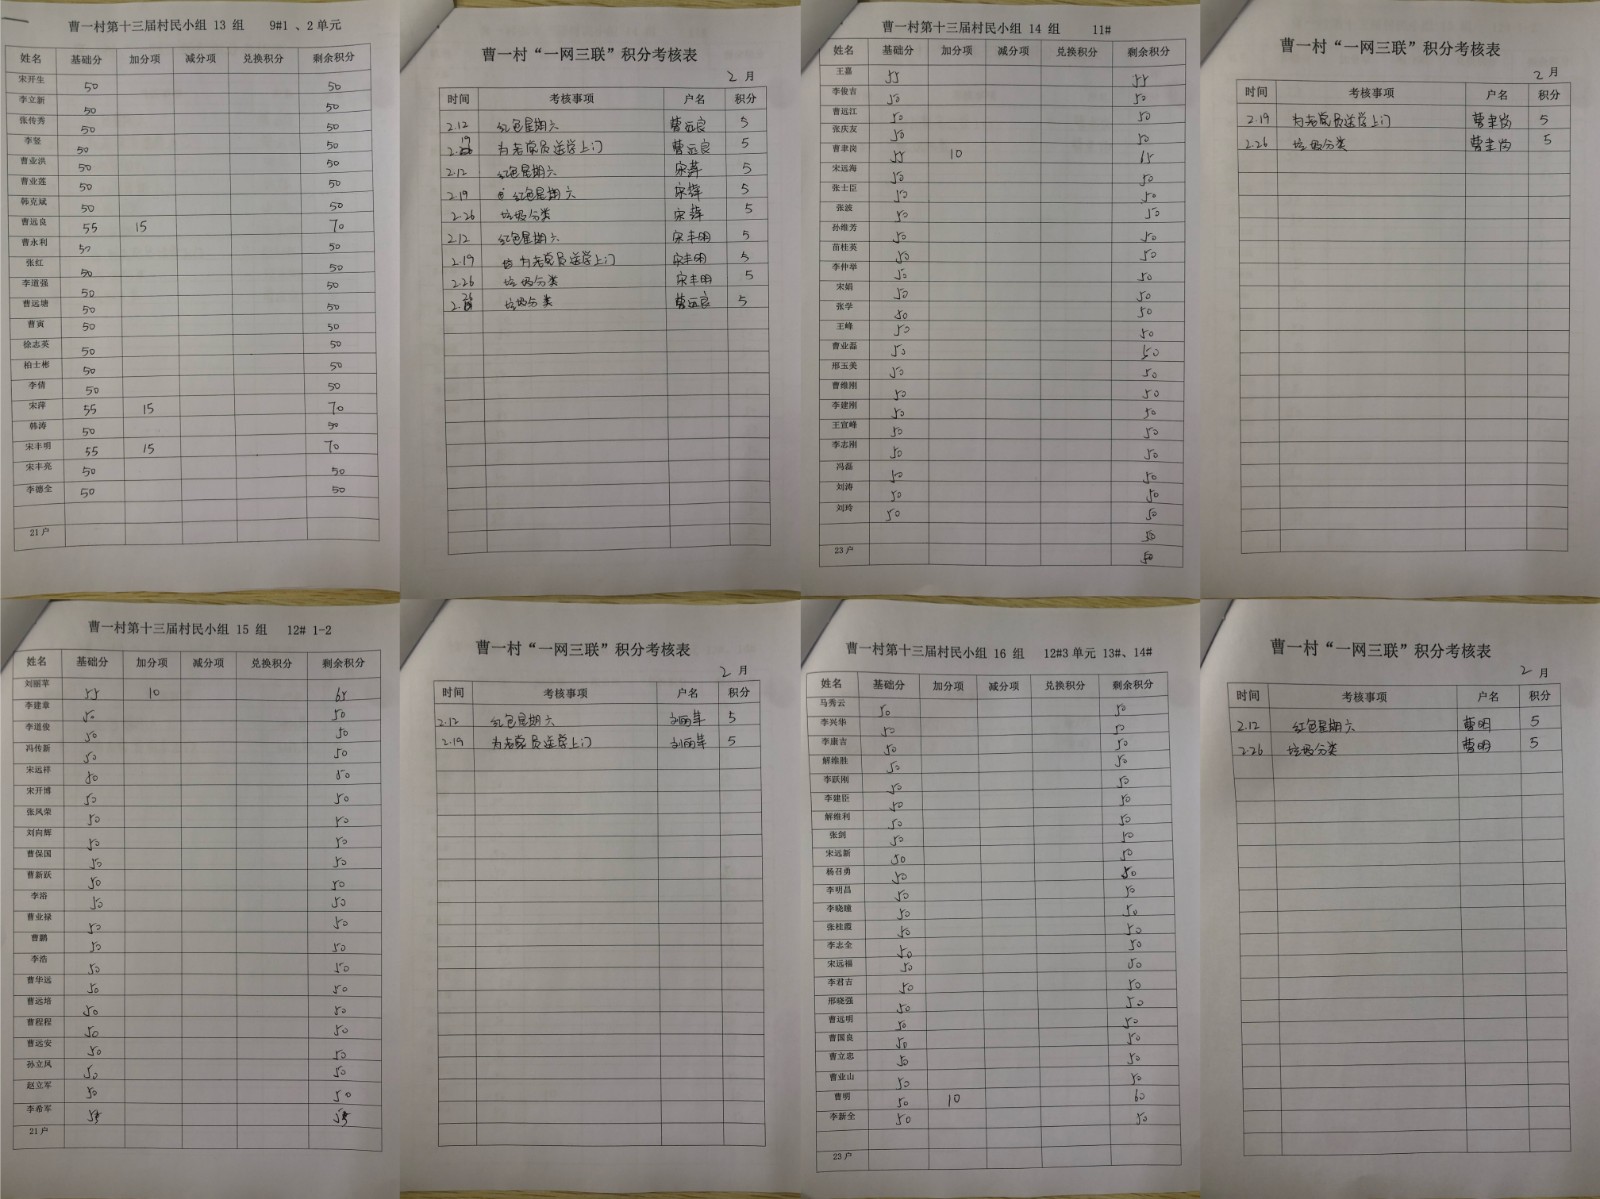 曹一村第十三届村民小组 13 组 9#1 、2单元
姓名 基础分 加分项 减分项 兑换积分 剩余积分
宋开生 50 50
李立新 50 50
张传秀 50 50
李坚 50 50
曹业洪 50 50
曹业莲 50 50
韩克斌 50 50
曹远良 55 15 70
曹永利 50 50
张红 50 50
李道强 50 50
曹远塘 50 50
曹寅 50 50
徐志英 50 50
柏士彬 50 50
李倩 50 50
宋萍 55 15 70
韩涛 50 50
宋丰明 55 15 70
宋丰亮 50 50
李德全 50 50
21户
曹一村“一网三联”积分考核表
2 月
时间 考核事项 户名 积分
2.12 红色星期六 曹远良 5
2.19 为老党员送学上门 曹远良 5
2.12 红色星期六 宋萍 5
2.19 红色星期六 宋萍 5
2.26 垃圾分类 宋萍 5
2.12 红色星期六 宋丰明 5
2.19 为老党员送学上门 宋丰明 5
2.26 垃圾分类 宋丰明 5
2.26 垃圾分类 曹远良 5
曹一村第十三届村民小组 14 组 11#
姓名 基础分 加分项 减分项 兑换积分 剩余积分
王嘉 55 55
李俊吉 50 50
曹远江 50 50
张庆友 50 50
曹聿岗 55 10 65
宋远海 50 50
张士臣 50 50
张波 50 50
孙维芳 50 50
苗桂英 50 50
李仲举 50 50
宋娟 50 50
张学 50 50
王峰 50 50
曹业磊 50 50
邢玉美 50 50
曹维刚 50 50
李建刚 50 50
王宣峰 50 50
李志刚 50 50
冯磊 50 50
刘涛 50 50
刘玲 50 50
50
23户 50
曹一村“一网三联”积分考核表
2 月
时间 考核事项 户名 积分
2.19 为老党员送学上门 曹聿岗 5
2.26 垃圾分类 曹聿岗 5
曹一村第十三届村民小组 15 组 12# 1-2
姓名 基础分 加分项 减分项 兑换积分 剩余积分
刘丽苹 55 10 65
李建章 50 50
李道俊 50 50
冯传新 50 50
宋远祥 50 50
宋开博 50 50
张凤荣 50 50
刘向辉 50 50
曹保国 50 50
曹新跃 50 50
李浴 50 50
曹业禄 50 50
曹鹏 50 50
李浩 50 50
曹华远 50 50
曹远培 50 50
曹程程 50 50
曹远安 50 50
孙立凤 50 50
赵立军 50 50
李希军
21户
曹一村“一网三联”积分考核表
2 月
时间 考核事项 户名 积分
2.12 红色星期六 刘丽苹 5
2.19 为老党员送学上门 刘丽苹 5
曹一村第十三届村民小组 16 组 12#3单元 13#、14#
姓名 基础分 加分项 减分项 兑换积分 剩余积分
马秀云 50 50
李兴华 50 50
李康吉 50 50
解维胜 50 50
李跃刚 50 50
李建臣 50 50
解维利 50 50
张剑 50 50
宋远新 50 50
杨召勇 50 50
李明昌 50 50
李晓瞳 50 50
张桂霞 50 50
李志全 50 50
宋远福 50 50
李君吉 50 50
邢晓强 50 50
曹远明 50 50
曹国良 50 50
曹立忠 50 50
曹业山 50 50
曹明 50 10 60
李新全 50 50
23户
曹一村“一网三联”积分考核表
2 月
时间 考核事项 户名 积分
2.12 红色星期六 曹明 5
2.26 垃圾分类 曹明 5